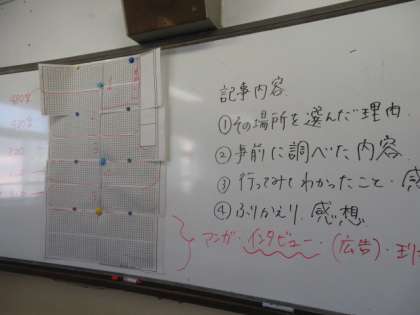 記事内容
①その場所を選んだ理由.
②事前に調べた内容.
③行ってみてわかったこと・感
④ふりかえり.感想
マンガ・インタビュー・(広告)・